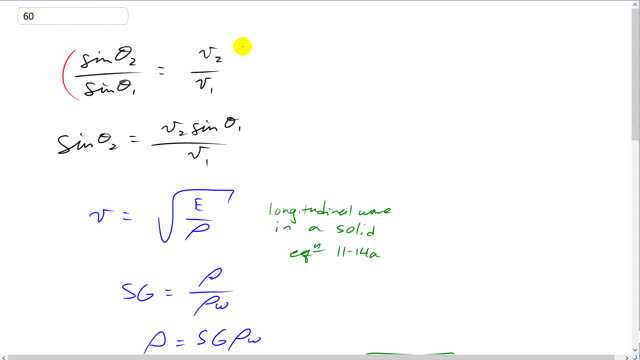 60
sinθ₂/sinθ₁ = v₂/v₁
sinθ₂ = v₂ sinθ₁/v₁
v = √(E/ρ)
longitudinal wave
in a solid
eqⁿ 11-14a
SG = ρ/ρw
ρ = SG ρw